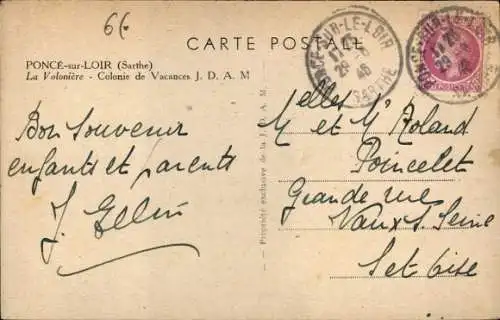 66
CARTE POSTALE
PONCÉ-sur-LOIR (Sarthe)
La Volonière - Colonie de Vacances J. D. A. M
PONCÉ-SUR-LE-LOIR
28 -8
46
SARTHE
PONCÉ-SUR-LE-LOIR
Bon Souvenir
enfants et parents
Propriété exclusive de la J. D. A. M
Melles
et Mr Roland
Poincelet
Grande rue
Vaux s. Seine
Set Oise